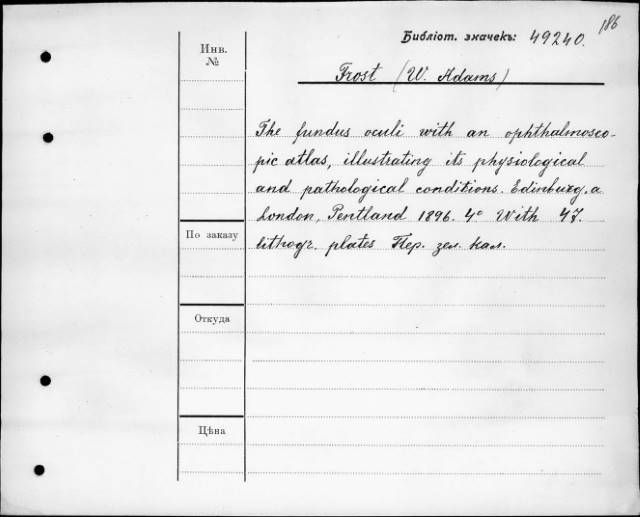 186
Библіот. значекъ: 49240.
Инв.
№
Frost (W. Adams)
The fundus oculi with an ophthalmosco-
pic atlas, illustrating its physiological
and pathological conditions. Edinburg. a
London, Pentland 1896. 4° With 47.
По заказу
lithogr. plates Пер. зел. кал.
Откуда
Цѣна